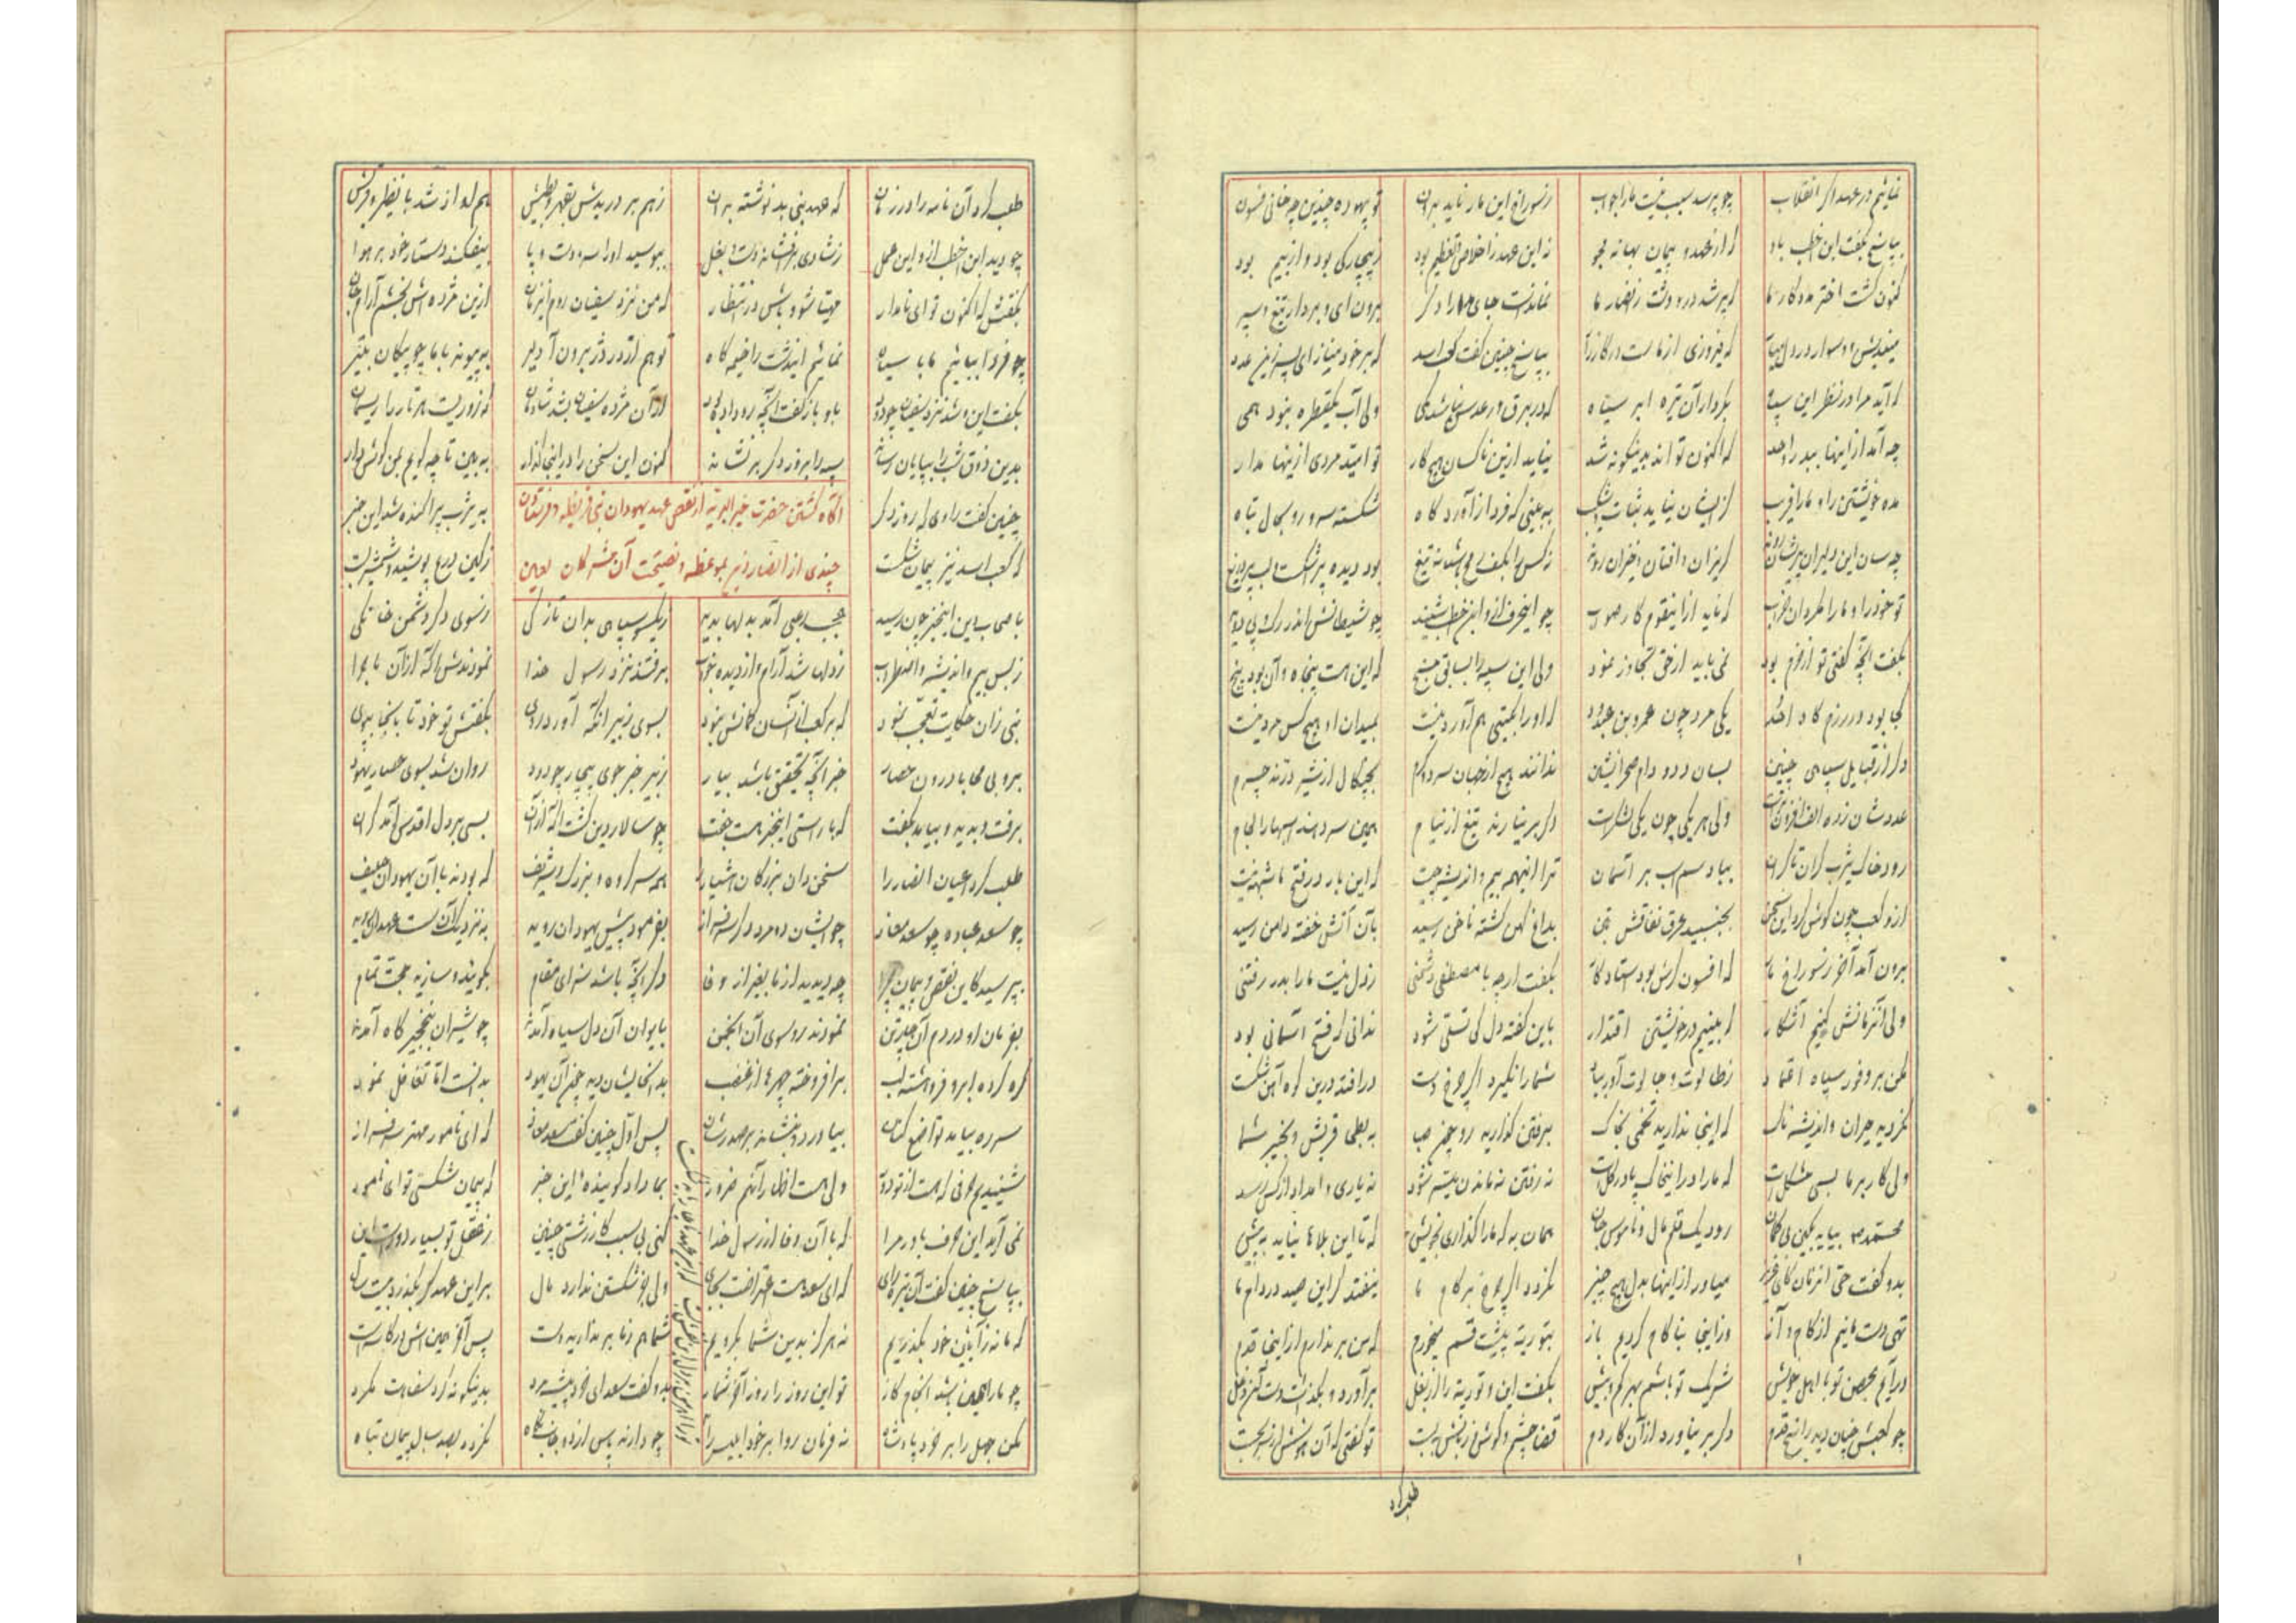 نمائیم در عهد اگر انقلاب چو پرسد سبب نیست ما را جواب ز سوراخ این مار ناید برون تو بیهوده چندین چه خوانی فسون
بپاسخ بگفت ابن اخطب باو که از عهد و پیمان بهانه مجو نه این عهد ز اخلاص و تعظیم بود ز بیچارگی بود و از بیم بود
کنون گشت اختر مددگار ما که پر شد در و دشت ز انصار ما نماندست جای مدارا دگر برون آی و بردار تیغ و سپر
میندیش و وسواس در دل میار که فیروزی از ماست در کارزار بپاسخ چنین گفت کعب اسد که بر خود مناز ای پسر زین عدد
که آید مرا در نظر این سپاه بکردار آن تیره ابر سیاه که در برق و رعدش نباشد کمی ولی آب یکقطره نبود همی
چه آمد از اینها ببدر و احد که اکنون تو اند بدینگونه شد نیاید ازین ناکسان هیچ کار تو امید مردی ازینها مدار
مده خویشتن را و ما را فریب کز ایشان نیاید ثبات به ببینی که فردا ز آوردگاه شکسته سر و رو بحال تباه
چه سان این دلیران پریشان روند گریزان و افتان و خیزان روند ز کس را بکف بود دیده پر اشک و لب پر دریغ
تو خود را و ما را مگردان خراب که ناید از اینقوم کار صواب چو اینحرف از و ابن اخطب شنید چو شیطانش اندر رگ و پی دوید
بگفت آنچه گفتی تو از حزم بود نمی باید از حق تجاوز نمود ولی این سپه را بسابق مسنج که این هست پنجاه و آن بود پنج
کجا بود در رزمگاه احد یکی مرد چون عمرو بن عبدود که او را بگیتی هم آورد نیست بمیدان او هیچ کس مرد نیست
دگر از قبایل سپاهی چنین بسان دد و دام صحرا نشین ندانند هیچ از جهان سرد و گرم بچنگال از شیر درند چرم
عددشان ز ده الف افزونترست ولی هر یکی چون یکی لشکرست دگر بر نیارند تیغ از نیام همین سر دهند اسبها را لجام
رود خاک یثرب کران تا کران بباد سم اسب بر آسمان ترا اینهمه بیم و اندیشه چیست که این بار در فتح ما شبهه نیست
از و کعب چون گوش کرد این سخن بجنبید عرق نفاقش بتن بداغ کهن گشته ناخن رسید بآن آتش خفته دامن رسید
برون آمد آخر ز سوراخ مار که افسونگرش بود استاد کار بگفت ار چه با مصطفی دشمنی ز دل نیست ما را بدر رفتنی
ولی آنزمانش کنیم آشکار که بینیم در خویشتن اقتدار باین گفته دل کی تسلی شود ندانی که فتح آسمانی بود
مکن بر وفور سپاه اعتماد ز طالوت و جالوت آور بیاد شما را نگیرد اگر چرخ دست در افتد درین کوه آهن شکست
بگردید حیران و اندیشه ناک که اینجا ندارید تخمی بخاک برفتن گذارید رو بی بطحی قریش و بخیبر شما
ولی کار بر ما بسی مشکل است که ما را در اینخاک پا در گل است نه رفتن نه ماندن میسر شود نه یاری و امداد از کس رسد
محمد بیاید بکین بی گمان رود یک قلم مال و ناموس و جان همان به که ما را گذاری بخویش که تا این بلاها نیاید به پیش
بدو گفت حتی ای عزیز میاور از اینها بدل هیچ چیز نگردد اگر چرخ بر کام ما نیفتد گر این صید در دام ما
تهی دست مانیم از کام و آز وز اینجا بناکام گردیم باز بتوریة پیشت قسم میخورم که من بر ندارم از اینجا قدم
در آیم بحصن تو با اهل خویش شریک تو باشم بهر کم و بیش بگفت این و توریة را از بغل برآورد و بگذاشت دست
چو کعبش چنان دید راسخ قدم دگر بر نیاورد از آن کار دم قضا چشم و گوش و زبانش ببست تو گفتی که آن هوشش از سر بجست
طلب کرد
طلب کرد آن نامه را در زمان که عهد نبی بد نوشته بر آن ز هم بر دریدش بقهر و بطیش هم آواز شد با نضیر و قریش
چو دید ابن اخطب از و این عمل ز شادی بر افشاند دست و بغل ببوسید او را سر و دست و پا بیفکند دستار خود بر هوا
بگفتش که اکنون تو ای نامدار مهیا شو و باش در انتظار که من نزد سفیان روم اینزمان ازین مژده اش بخشم آرام جان
چو فردا بیائیم ما با سپاه نمائیم ایندشت را خیمه گاه تو هم از در دز برون آ دلیر به پیوند با ما چو پیکان به تیر
بگفت این و شد نزد سفیان چو دود باو باز گفت آنچه رو داده بود از آن مژده سفیان بشد شادمان
بدین ذوق شب را بپایان رساند سپه را بروز دگر بر نشاند کنون این سخن را در اینجا گذار به بین تا چه گویم بمن گوش دار
آگاه گشتن حضرت خیر البریه از نقض عهد یهودان بنی قریظه و فرستادن
چندی از انصار نزد بموعظه و نصیحت آن مشرکان لعین
چنین گفت راوی که روز دگر به یثرب پراکنده شد این خبر
که کعب اسد نیز پیمان شکست ز کین درع پوشید و شمشیر بست
باصحاب این اینخبر چون رسید عجب رعبی آمد بدلها پدید ز یکسو سپاهی بدان تازگی وز سوی دگر دشمن خانگی
ز بس بیم و اندیشه و اضطراب ز دلها شد آرام و از دیده خواب برفتند نزد رسول خدا نمودندش آگه از آن ماجرا
نبی زان حکایت تعجب نمود که بر کعب از آنسان گمانش نبود بسوی زبیر آنگه آورد روی بگفتش تو خود تا بآنجا بپوی
برو بی محابا درون حصار خبر آنچه تحقیق باشد بیار زبیر خبر جوی چو دود روان شد بسوی حصار یهود
برفت و بدید و بیامد بگفت که با راستی اینخبر هست جفت چو سالار دین گشت آگه از آن بسی بر دل اقدس آمد گران
طلب کرد اعیان انصار را سخن دان بزرگان هشیار را همه سرگروه و بزرگ و شریف که بودند با آن یهودان حلیف
چو سعد عباده چو سعد معاذ چو ایشان دو مرد دگر سرفراز بفرمود پیش یهودان روید به نزدیک آن سست عهدان روید
بپرسید کاین نقض پیمان چرا چه دیدید از ما بغیر از وفا دگر آنچه باشد سزای مقام بگوئید و سازید حجت تمام
بفرمان او در دم آن چار تن نمودند رو سوی آن انجمن بایوان آن دل سیاه آمدند چو شیران بنخجیرگاه آمدند
گره کرده ابرو فرو هشته لب بر افروخته چهرها از غضب بد اندیشان دید چون آن یهود بدانست اما تغافل نمود
بیاورد و بنشاند بر صدر شان پس اول چنین گفت سعد معاذ که ای نامور مهتر سرفراز
شنیدیم حرفی که هست از تو دور ولی هست اظهار آنهم ضرور بما داد گوینده این خبر که پیمان شکستی تو ای نامور
نمی آید این حرف باور مرا که با آن وفا از رسول خدا کنی بی سبب کار زشتی چنین ز عقل تو بسیار دورست این
بپاسخ چنین گفت آن تیره رای که ای سعد هست اعترافت بجای ولی جز شکستن ندارد مآل بر این عهد گر بگذرد بیست سال
که ما نه ز آئین خود بگذریم نه هرگز بدین شما بگرویم شما هم ز ما بر ندارید دست پس آخر همین اش در کاسه است
چو ما را همین باشد انجام کار تو این روز را روز آخر شمار بدو گفت سعد ای خرد پیشه مرد بدینگونه کس سفاهت نکرد
مکن جهل را بر خرد پادشاه نه فرمان روا بر خود ابلیس را چو دارند پاس نگردد بصد سال پیمان تباه